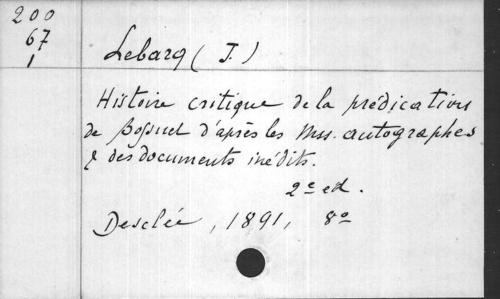 200
67
1
Lebarq (J.)
Histoire critique de la prédication
de Bossuet d'après les Mss. autographes
& des documents inédits.
2e ed.
Desclée, 1891, 8o